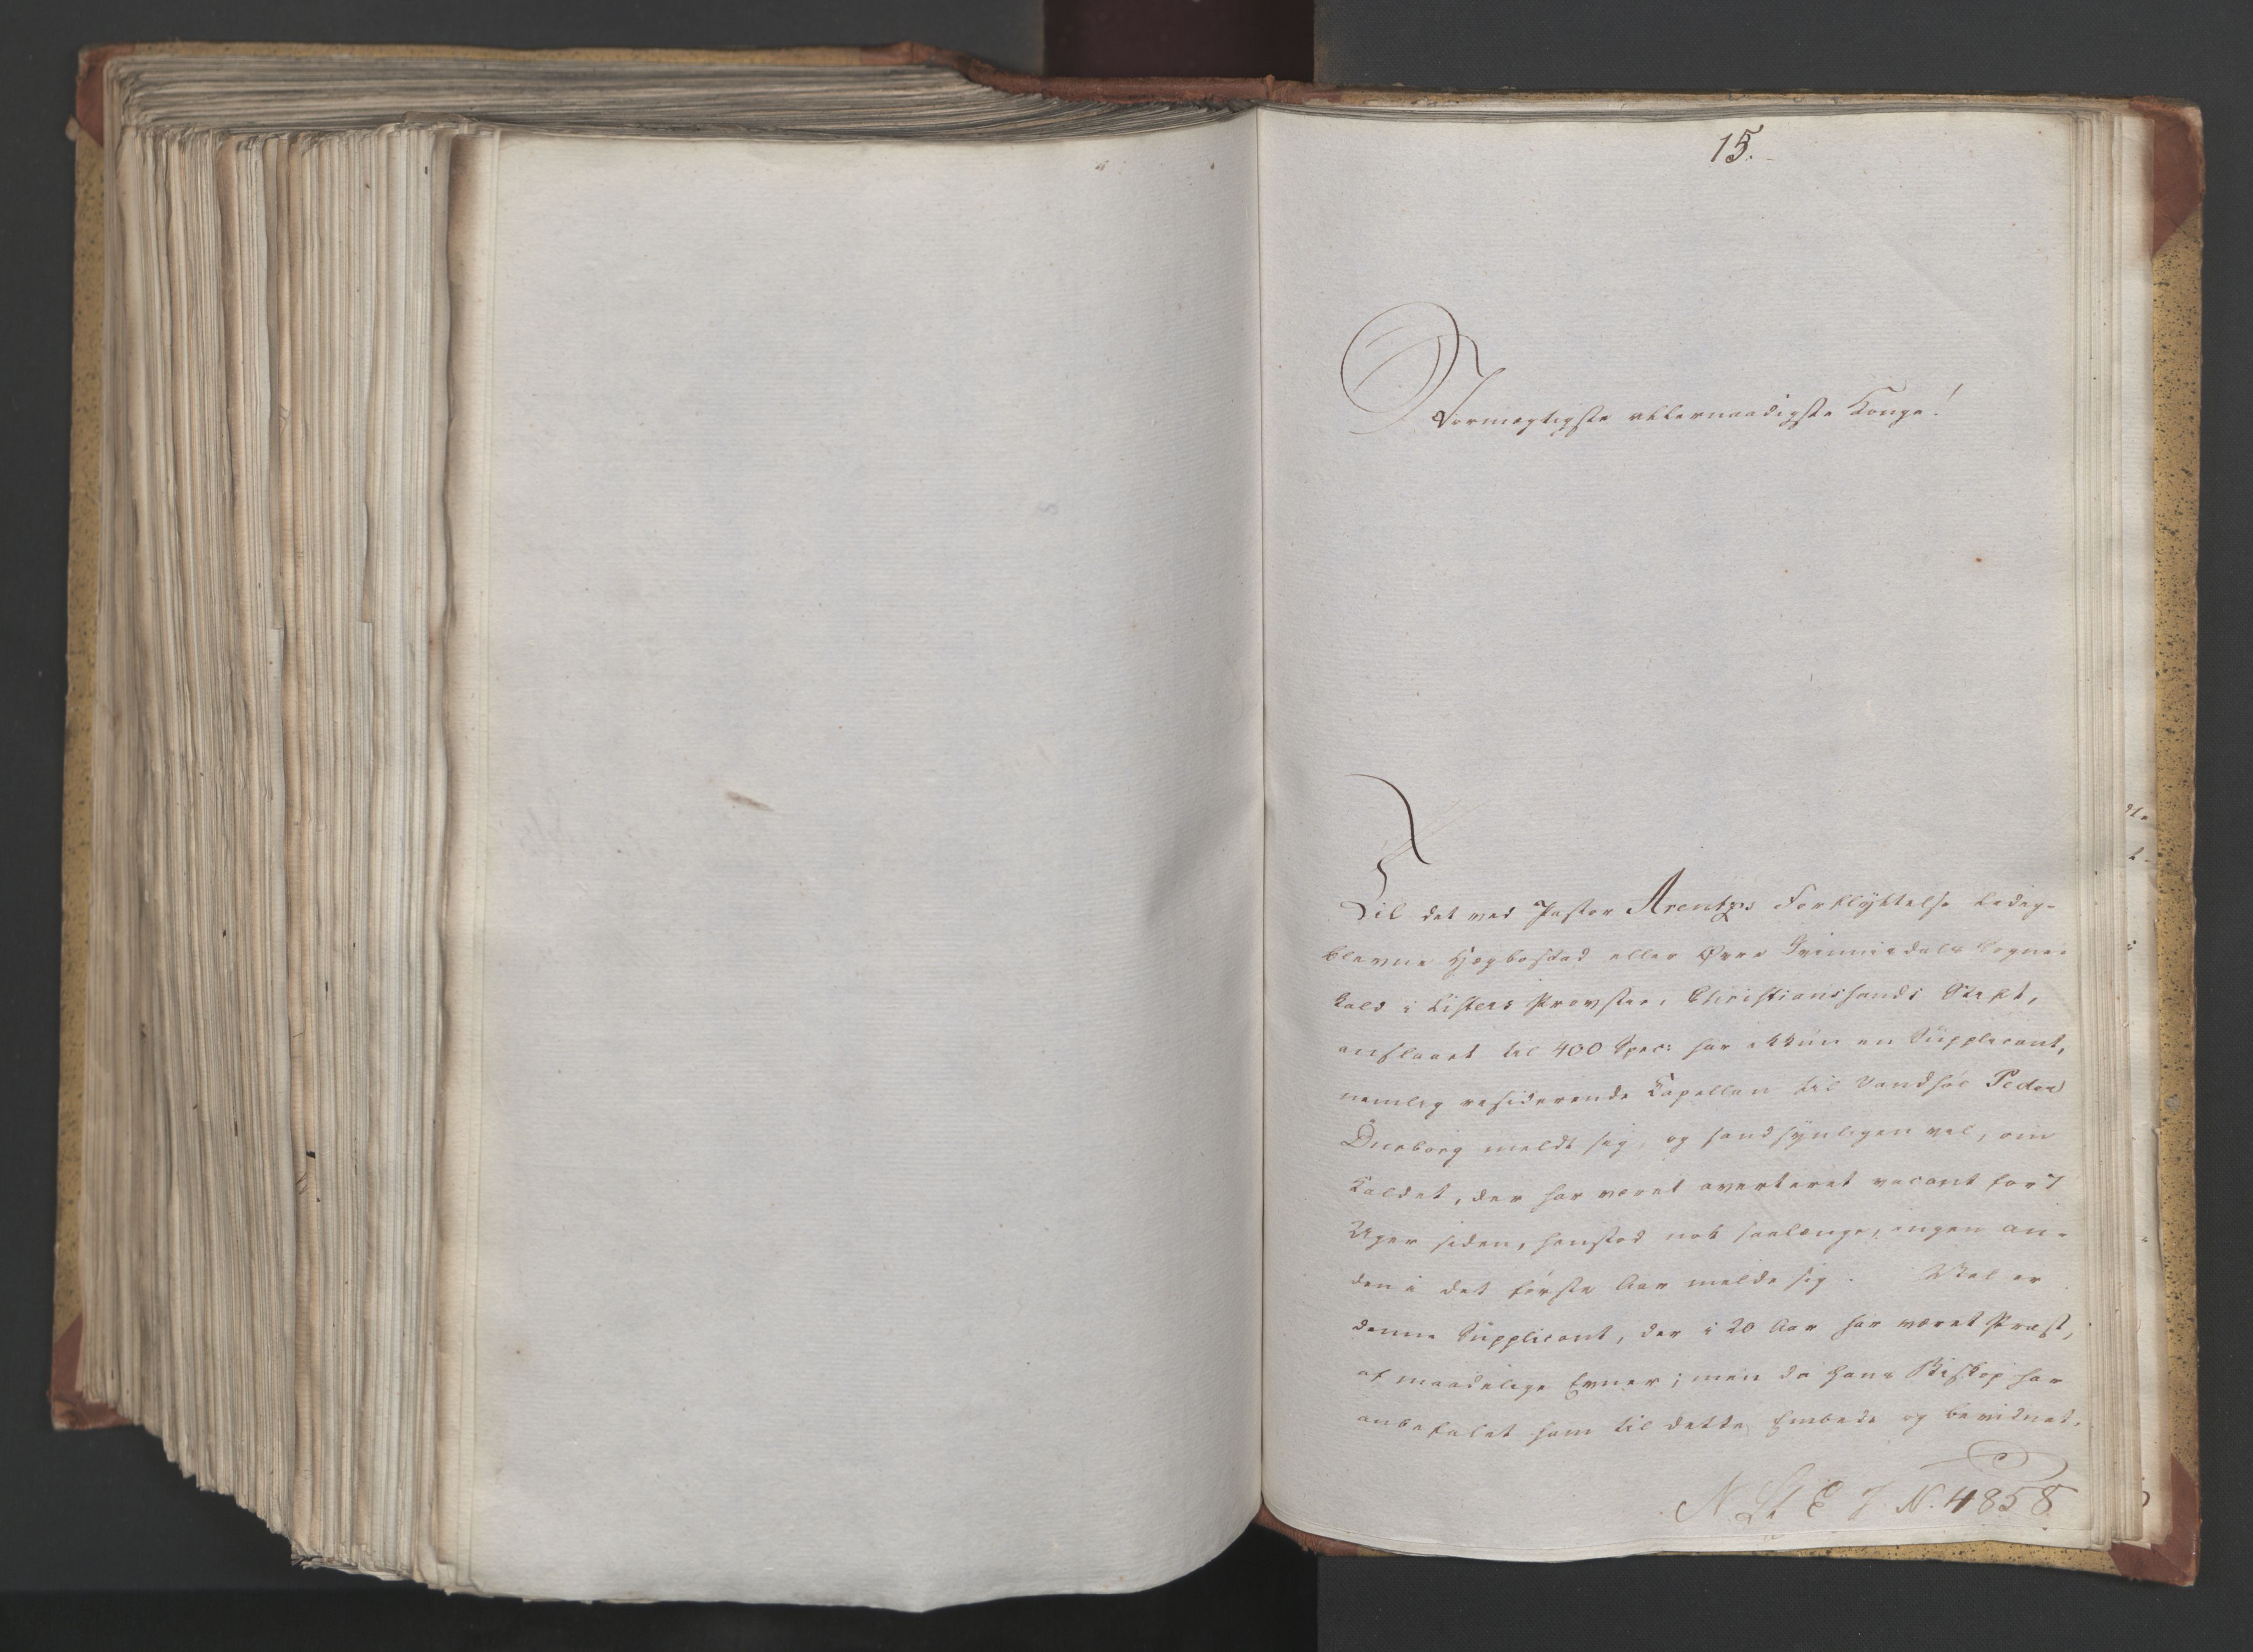 15.
Stormægtigste allernaadigste Konge!
Til det ved Pastor Arentzs Forflÿttelse ledig-
blevne Hægbostad eller Øvre Qvinnisdals Sogne-
kald i Listers Provstie, Christiansands Stift,
anslaaet til 400 Spec: har ikkun en Supplicant,
nemlig residerende Kapellan til Vandsøe Peder
Duborg meldt sig, og sandsÿnligen vel, om
Kaldet, der har været averteret vacant for 7
Uger siden, henstod nok saalænge, ingen an-
den i det første Aar melde sig. Vel er
denne Supplicant, der i 20 Aar har været Præst,
af maadelige Evner; men da hans Biskop har
anbefalet ham til dette Embede og bevidnet,
N. St. E. J. N. 4858